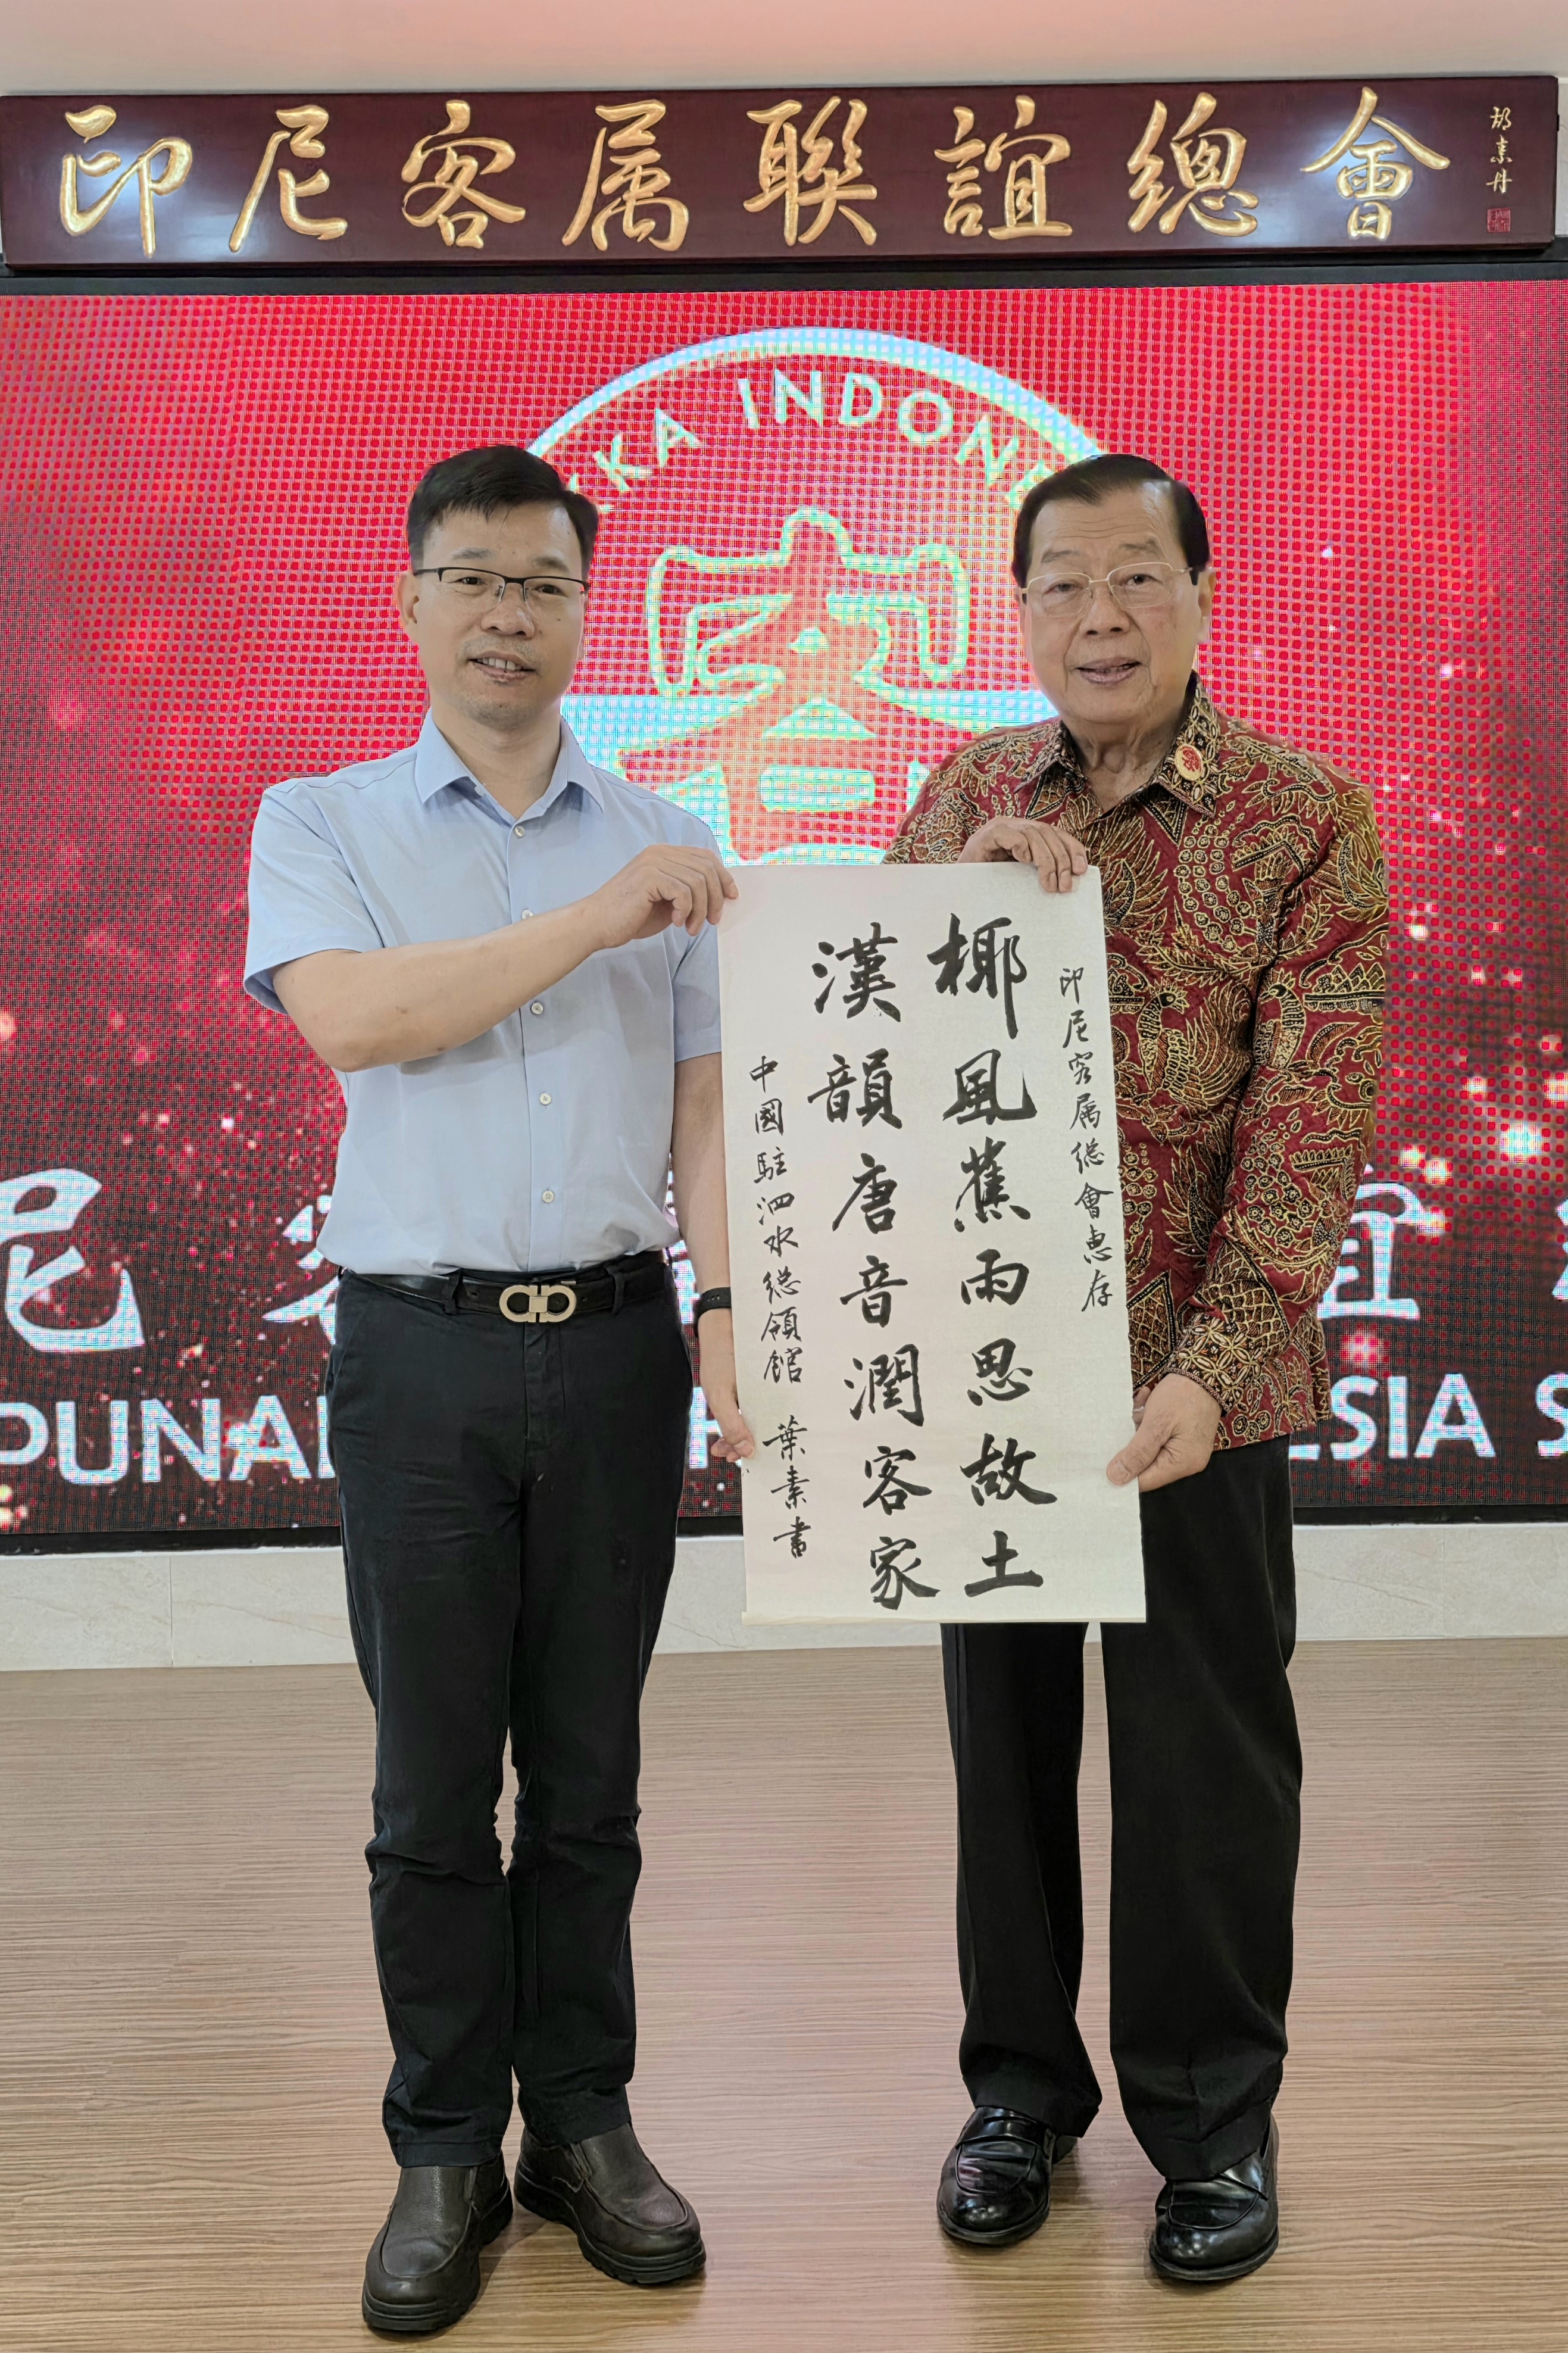 印尼客属聯誼總會
胡素丹
KKA INDONE
客
印尼客属總會惠存
椰風蕉雨思故土
漢韻唐音潤客家
中國駐泗水總領館 葉素書
尼
誼
PUNA
ESIA S